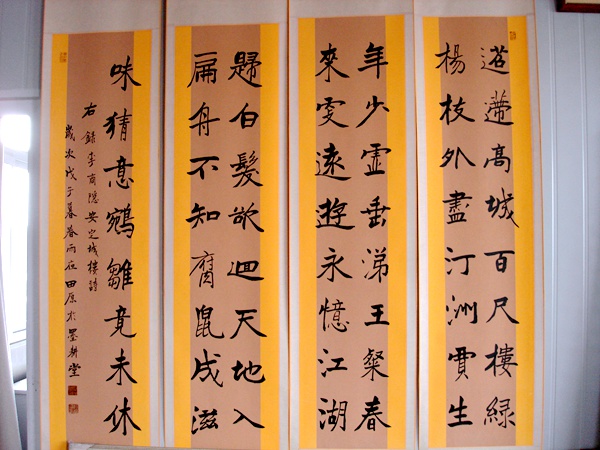 迢遰高城百尺樓綠
楊枝外盡汀洲賈生
年少虛垂涕王粲春
來更遠遊永憶江湖
歸白髮欲迴天地入
扁舟不知腐鼠成滋
味猜意鵷雛竟未休
右錄李商隱安定城樓詩
歲次戊子暮春雨在田原於墨耕堂